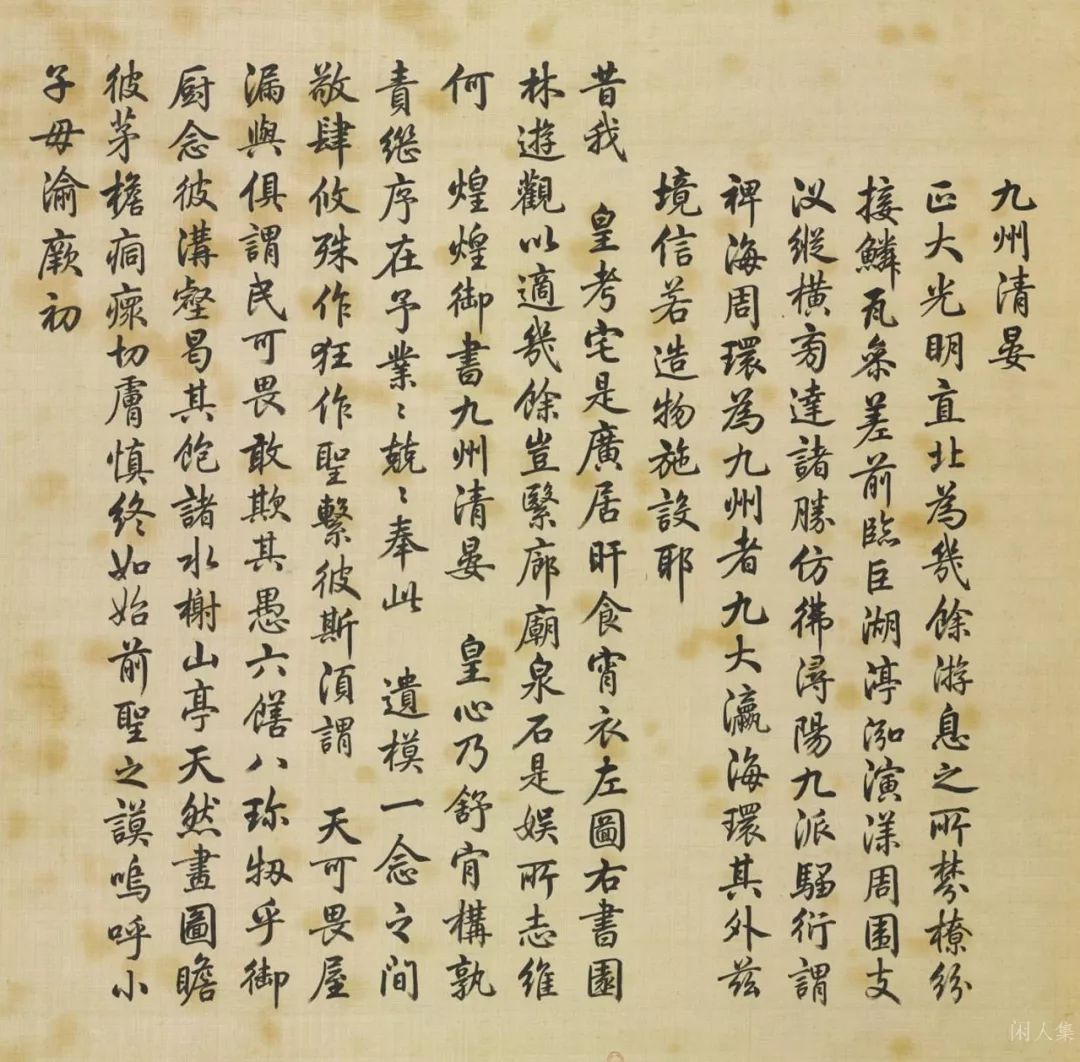 九州清晏
正大光明直北為幾餘游息之所棼橑紛
接鱗瓦叅差前臨巨湖渟泓演漾周圍支
汊縱橫旁達諸勝仿彿潯陽九派騶衍謂
裨海周環為九州者九大瀛海環其外兹
境信若造物施設耶
昔我 皇考宅是廣居旰食宵衣左圖右書園
林遊觀以適幾餘豈繄廊廟泉石是娛所志維
何 煌煌御書九州清晏 皇心乃舒肯構孰
責繼序在予業〻兢〻奉此 遺模一念之間
敬肆攸殊作狂作聖繫彼斯須謂 天可畏屋
漏與俱謂民可畏敢欺其愚六饍八珍牣乎御
厨念彼溝壑曷其飽諸水榭山亭天然畫圖瞻
彼茅檐痌瘝切膚慎終如始前聖之謨嗚呼小
子毋渝厥初
闲人集